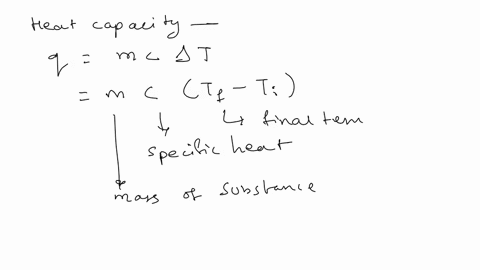 Heat capacity —
q = m c Δ T
= m c (Tf - Ti)
final tem
specific heat
mass of substance